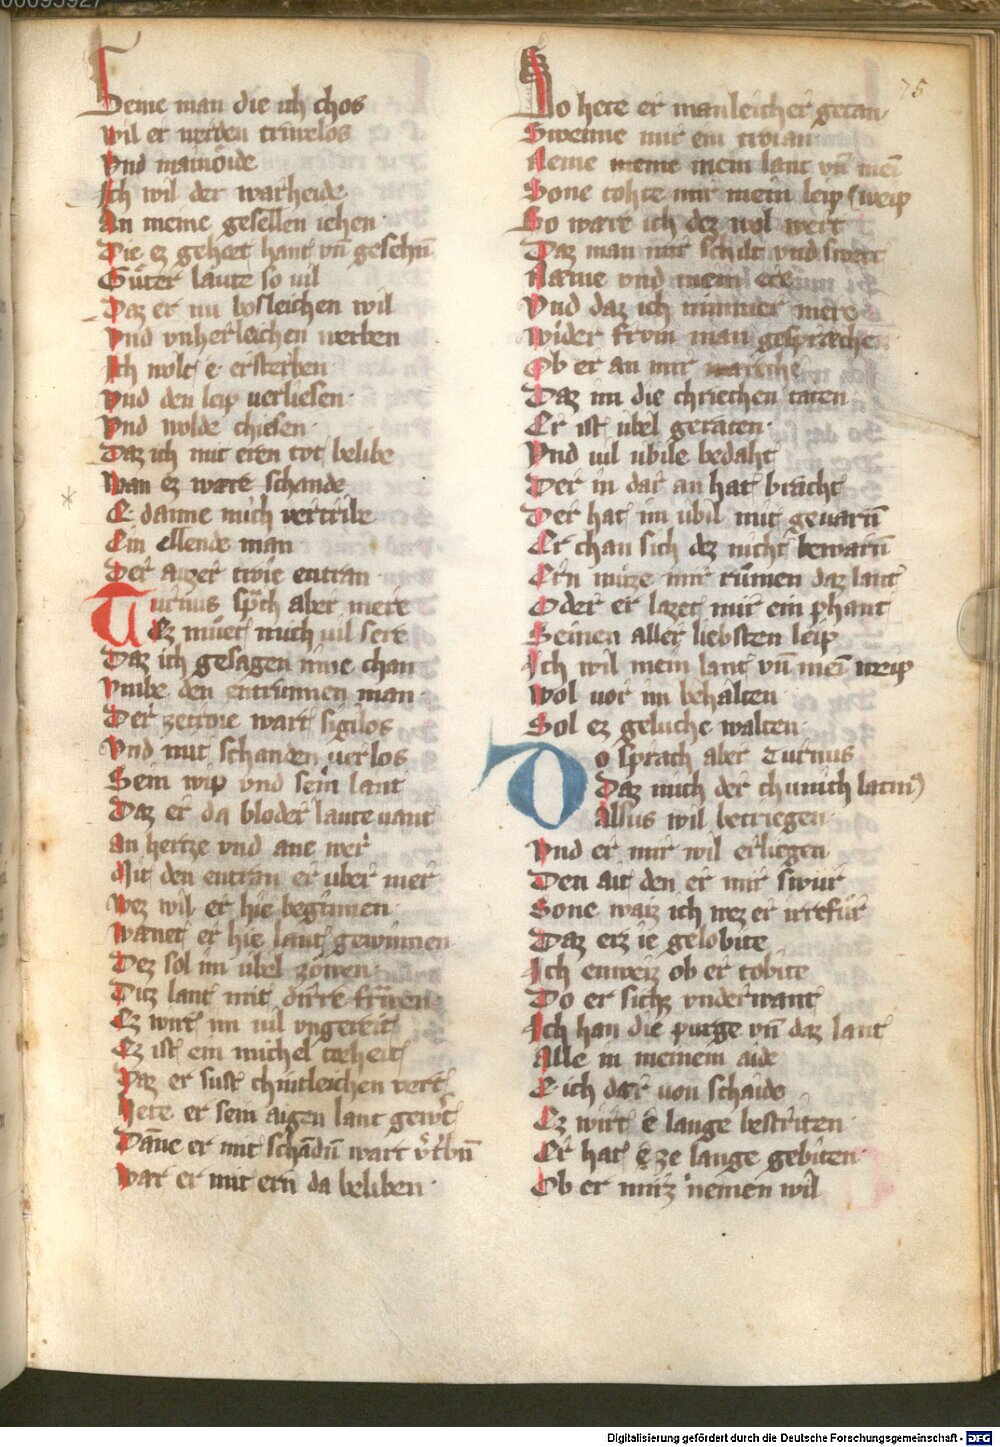 Deme man die ich chos
wil er werden triwelos
Vnd mainoide
Ich wil der warheide
An meine gesellen iehen
Die ez gehort hant vn̄ gesehn̄
Guͤter laute so uil
Daz er nu bosleichen wil
Vnd vnherleichen werben
Ich wolt e ersterben
Vnd den leip verliesen
Vnd wolde chiesen
Daz ich mit eren tot belibe
Wan ez ware schande
E danne mich vertribe
Ein ellende man
Der auzer troie entran
Turnus sp̄ch aber mere
Ez muͤet mich uil sere
Daz ich gesagen nine chan
Vmbe den entrunnen man
Der zetroie wart sigelos
Vnd mit schanden verlos
Sein wip vnd sein lant
Daz er da bloder laute vant
An hertze vnd ane wer
Mit den entran er uber mer
Wez wil er hie beginnen
Wanet er hie lant gewinnen
Dez sol im ubel zowen
Ditz lant mit dirre frowen
Ez wirt im uil vngereit
Ez ist ein michel torheit
Daz er sust chintleichen vert
Hete er sein aigen lant gewert
Danne er mit schādn̄ wart v̓tbn̄
War er mit ern da beliben
Do hete er manleicher getan
Sweine mir ein troian
Neme meme mein lant vn̄ mei
Sone tohte mir mein leip
weip
So ware ich dez wol wert
Daz man mir schilt vnd swert
Name vnd mein ere
Vnd daz ich nimmer mere
Wider frum man gesprache
Ob er an mir
Daz im die chriechen taten
Er ist ubel geraten
Vnd uil ubile bedaht
Der in dar an hat bracht
Der hat im ubil mit geuarn̄
Er chan sich dez nicht bewarn̄
Ern muze mir rumen daz lant
Oder er lazet mir ein phant
Seinen aller liebsten leip
Ich wil mein lant vn̄ mei weip
Wol vor im behalten
Sol ez geluche walten
Do sprach aber Turnus
Daz mich der chunich latin̓
Alsus wil betriegen
Vnd er mir wil erliegen
Den ait den er mir swur
Sone waiz ich wez er irrefur
Daz erz ie gelobite
Ich enweiz ob er tobite
Do er sichz vnderwant
Ich han die purge vn̄ daz lant
Alle in meinem aide
E ich dar von schaide
Ez wirt e lange bestriten
Er hat e ze lange gebiten
Ob er mirz nemen wil
75
Digitalisierung gefördert durch die Deutsche Forschungsgemeinschaft - DFG